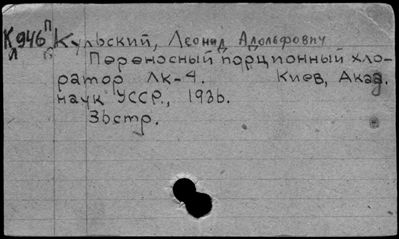 К946 П Кульский, Леонид Адольфович
Л
Переносный порционный хло-
ратор ЛК-4. Киев, Акад.
наук УССР, 1936.
36стр.